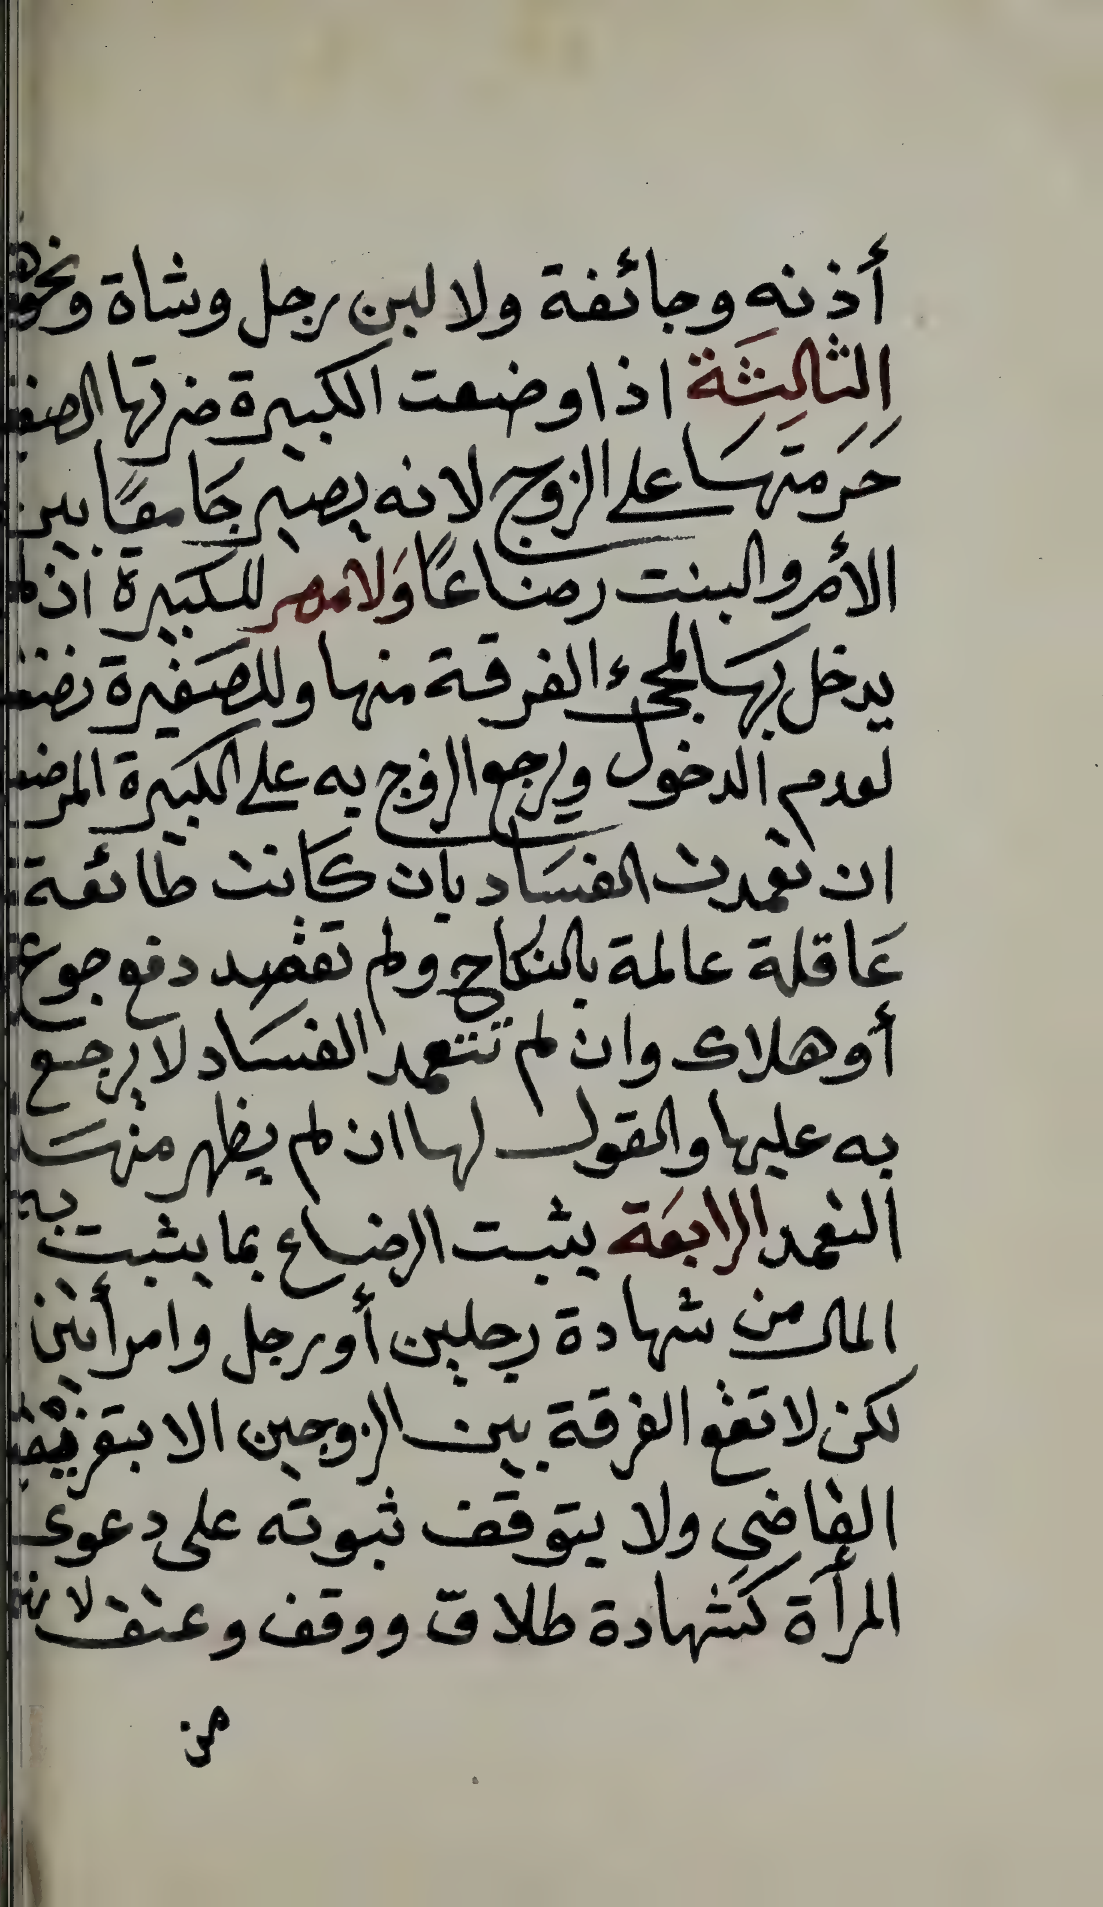 أذنه وجائفة ولا لبن رجل وشاة ونحوها
الثالثة اذا وضعت الكبيرة ضرتها
حَرمتهَا على الزوج لانه يصير جَامعًا بين
الأم والبنت رضاعًا وَلامهر للكبيرة اذ لم
يدخل بهَا لمجىء الفرقة منها وللصَغيرة نصف
لعدم الدخول ويرجع الزوج به على الكبيرة
ان تعمدت الفسَاد بان كَانت طائعة
عَاقلة عالمة بالنكاح ولم تقصد دفع جوع
أوهلاك وان لم تتعمد الفسَاد لا يرجع
به عليها والقول لها ان لم يظهر منهَا
التعمد الرابعَة يثبت الرضاع بما يثبت به
المال من شهادة رجلين أو رجل وامرأتين
لكن لا تقع الفرقة بين الزوجين الا بتفريق
القاضي ولا يتوقف ثبوته على دعوى
المرأة كَشهادة طلاق ووقف وعتق لانه
من